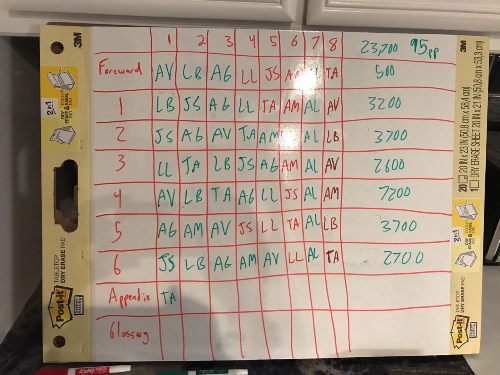 1 2 3 4 5 6 7 8 23,700 95pp
Foreward AV LB AG LL JS AL TA 500
1 LB JS AG LL TA AM AL AV 3200
2 JS AG AV TA AM AL LB 3700
3 LL TA LB JS AG AM AL AV 2600
4 AV LB TA AG LL JS AL AM 7200
5 AG AM AV JS LL TA AL LB 3700
6 JS LB AG AM AV LL AL TA 2700
Appendix TA
Glossary
Post-it
TABLETOP
DRY ERASE PAD
3M
2in1
DRY ERASE PAD
20 20 IN x 23 IN (50,8 cm x 58,4 cm)
1 DRY ERASE SHEET 20 IN x 21 IN (50,8 cm x 53,3 cm)
3M
2in1
Post-it
TABLETOP
DRY ERASE PAD
EXPO